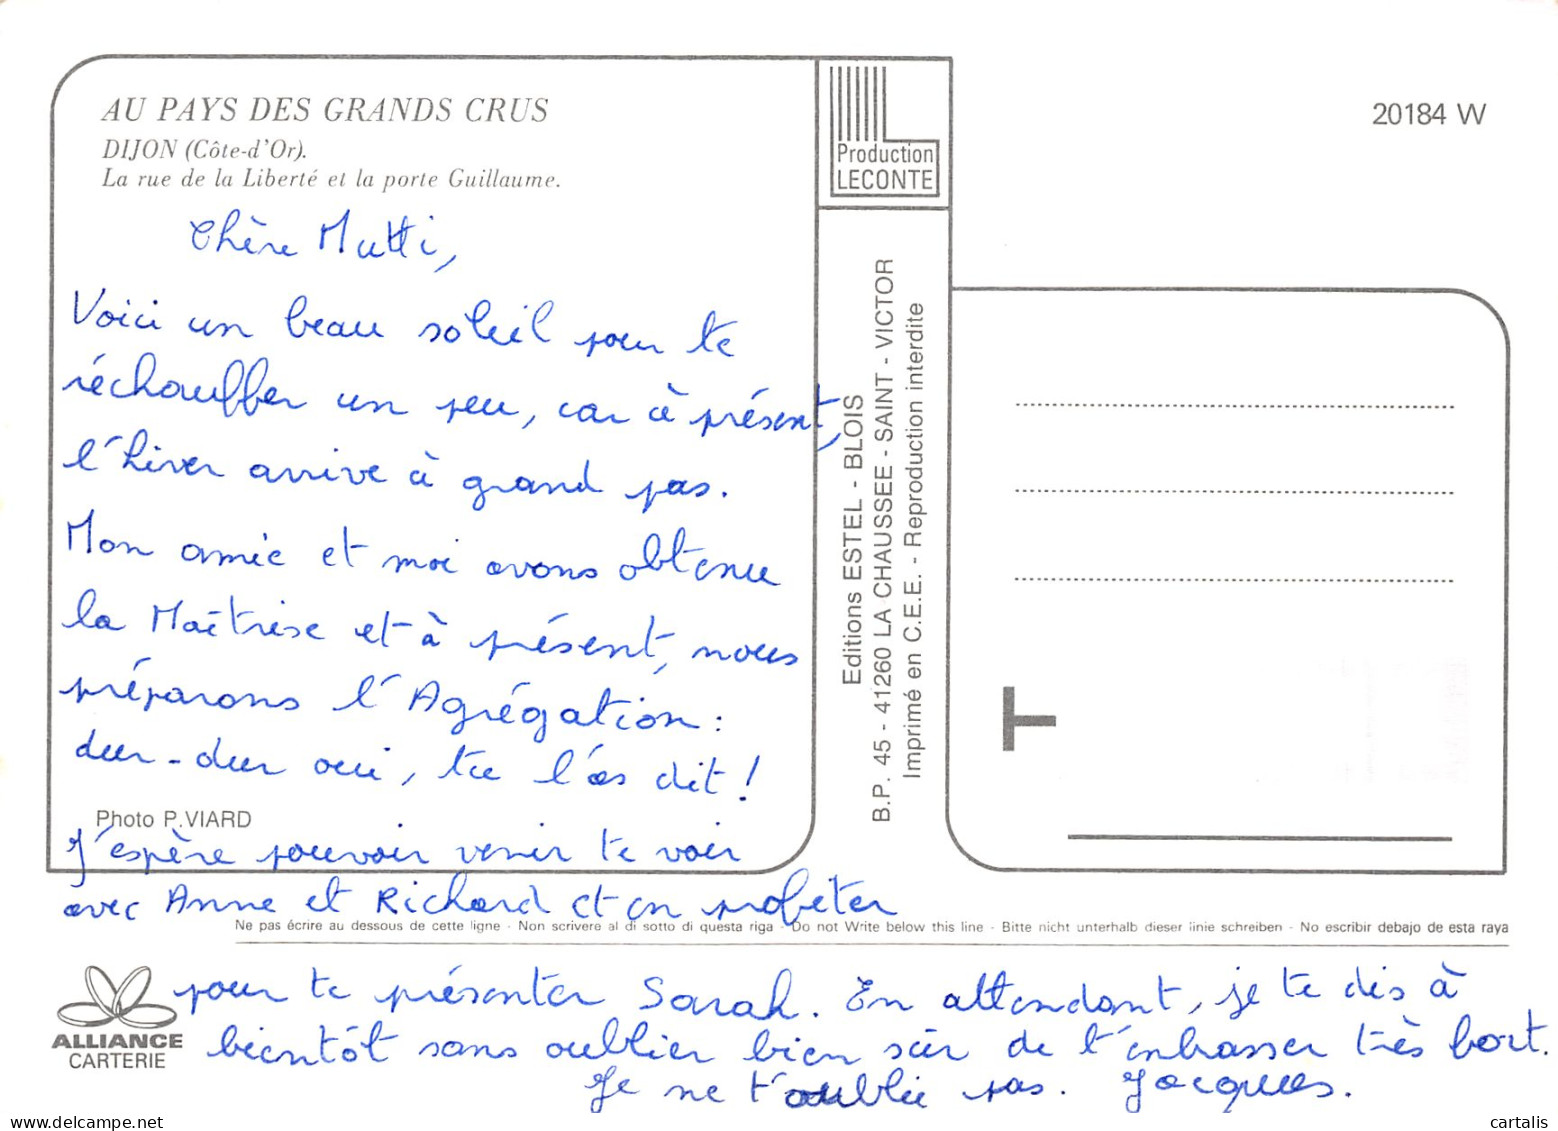 AU PAYS DES GRANDS CRUS
DIJON (Côte-d'Or).
La rue de la Liberté et la porte Guillaume.
Chère Mutti,
Voici un beau soleil pour te
réchauffer un peu, car à présent,
l'hiver arrive à grand pas.
Mon amie et moi avons obtenu
la Maîtrise et à présent, nous
préparons l'Agrégation :
dur-dur oui, tu l'as dit !
Photo P.VIARD
J'espère pouvoir venir te voir
avec Anne et Richard et en profiter
Ne pas écrire au dessous de cette ligne - Non scrivere al di sotto di questa riga - Do not Write below this line - Bitte nicht unterhalb dieser linie schreiben - No escribir debajo de esta raya
pour te présenter Sarah. En attendant, je te dis à
bientôt sans oublier bien sûr de t'embrasser très fort.
Je ne t'oublie pas. Jacques.
ALLIANCE
CARTERIE
Production
LECONTE
Editions ESTEL - BLOIS
B.P. 45 - 41260 LA CHAUSSEE - SAINT - VICTOR
Imprimé en C.E.E. - Reproduction interdite
20184 W
cartalis